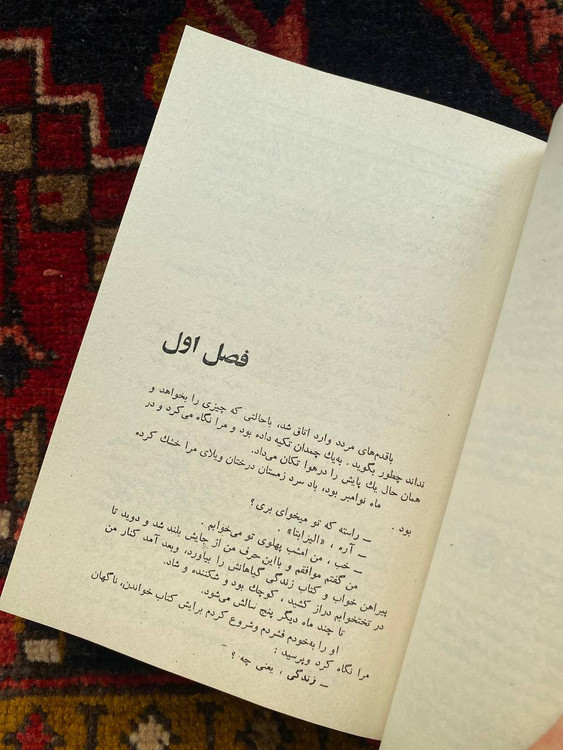 فصل اول
باقدم‌های مردد وارد اتاق شد، باحالتی که چیزی را بخواهد و
نداند چطور بگوید . به‌یك چمدان تکیه داده بود و مرا نگاه می‌کرد و در
همان حال یك پایش را درهوا تکان می‌داد.
ماه نوامبر بود، باد سرد زمستان درختان ویلای مرا خشك کرده
بود .
ـ راسته که تو میخوای بری؟
ـ آره ، «الیزابتا» .
ـ خب ، من امشب پهلوی تو می‌خوابم .
من گفتم موافقم و بااین حرف من از جایش بلند شد و دوید تا
پیراهن خواب و کتاب زندگی گیاهانش را بیاورد، وبعد آمد کنار من
در تختخوابم دراز کشید ، کوچك بود و شکننده و شاد.
تا چند ماه دیگر پنج سالش می‌شود.
او را به‌خودم فشردم وشروع کردم برایش کتاب خواندن، ناگهان
مرا نگاه کرد وپرسید :
ـ زندگی ، یعنی چه ؟ ـ